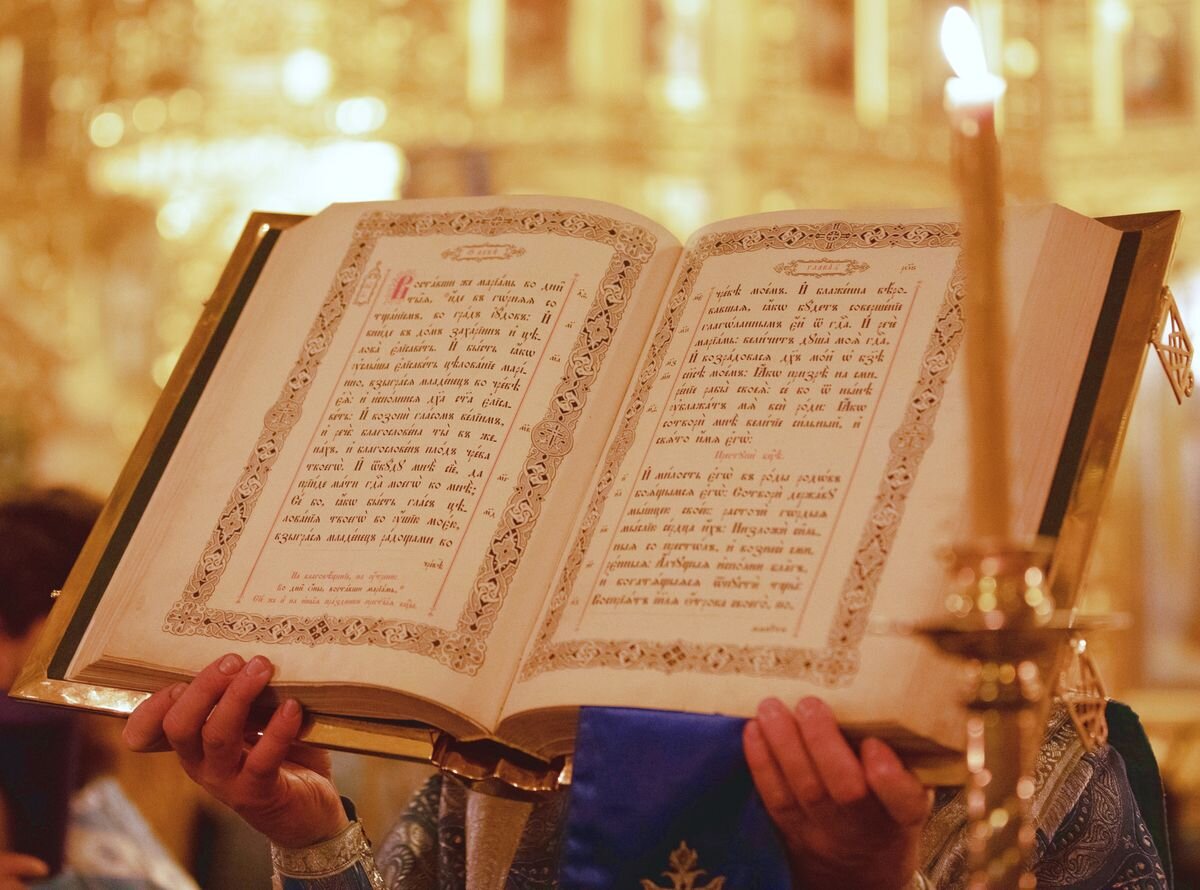 Воста́вши же марїа́мь во дни̑
ты̑ѧ, и҆́де въ гѡ́рнѧѧ со
тща́нїемъ, во гра́дъ і҆ꙋ́довъ: И҆
вни́де въ до́мъ заха́рїинъ и҆ цѣ-
лова̀ є҆лїсаве́ть. И҆ бы́сть ꙗ҆́кѡ
ᲂу҆слы́ша є҆лїсаве́ть цѣлова́нїе марі́-
ино, взыгра́сѧ младе́нецъ во чре́вѣ
є҆ѧ̀: и҆ и҆спо́лнисѧ дх҃а ст҃а є҆лїса-
ве́ть: И҆ возопѝ гла́сомъ ве́лїимъ,
и҆ речѐ: благослове́на ты̀ въ же-
на́хъ, и҆ благослове́нъ пло́дъ чре́ва
твоегѡ̀. И҆ ѿкꙋ́дꙋ мнѣ̀ сїѐ, да
прїи́де мт҃и гдⷭ҇а моегѡ̀ ко мнѣ̀;
Се́ бо, ꙗ҆́кѡ бы́сть гла́съ цѣ-
лова́нїѧ твоегѡ̀ во ᲂу҆́шїю моє́ю,
взыгра́сѧ младе́нецъ ра́дощами во
чре́вѣ
На бл҃говѣ́щенїе, на ᲂу҆́трени:
Во дни̑ ѻ҆́ны, воста́вши марїа́мъ,
Глава̀ а҃
чре́вѣ мое́мъ. И҆ блаже́нна вѣ́ро-
вавшаѧ, ꙗ҆́кѡ бꙋ́детъ соверше́нїе
гл҃го́ланнымъ є҆́й ѿ гдⷭ҇а. И҆ речѐ
марїа́мь: вели́читъ дꙋша̀ моѧ̀ гдⷭ҇а.
И҆ возра́довасѧ дꙋ́хъ мо́й ѡ҆ бз҃ѣ
сп҃сѣ мое́мъ: Ꙗ҆́кѡ призрѣ̀ на сми-
ре́нїе рабы̀ своеѧ̀: се́ бо ѿ нн҃ѣ
ᲂу҆блажа́тъ мѧ̀ всѝ ро́ди: Ꙗ҆́кѡ
сотворѝ мнѣ̀ вели́чїе си́льный, и҆
ст҃о и҆́мѧ є҆гѡ̀:
И҆ ми́лость є҆гѡ̀ въ ро́ды родѡ́въ
боѧ́щымсѧ є҆гѡ̀: Сотворѝ держа́вꙋ
мы́шцею свое́ю: расточѝ гѡ́рдыѧ
мы́слїю се́рдца и҆́хъ: Низложѝ си̑ль-
ныѧ со прⷭ҇то́лъ, и҆ вознесѐ смирє́-
рє́нныѧ: А҆́лчꙋщыѧ и҆спо́лни бла̑гъ,
и҆ богатѧ́щыѧсѧ ѿпꙋстѝ тщы̑:
Воспрїѧ́тъ і҆и҃лѧ ѻ҆́трока своего̀, по-